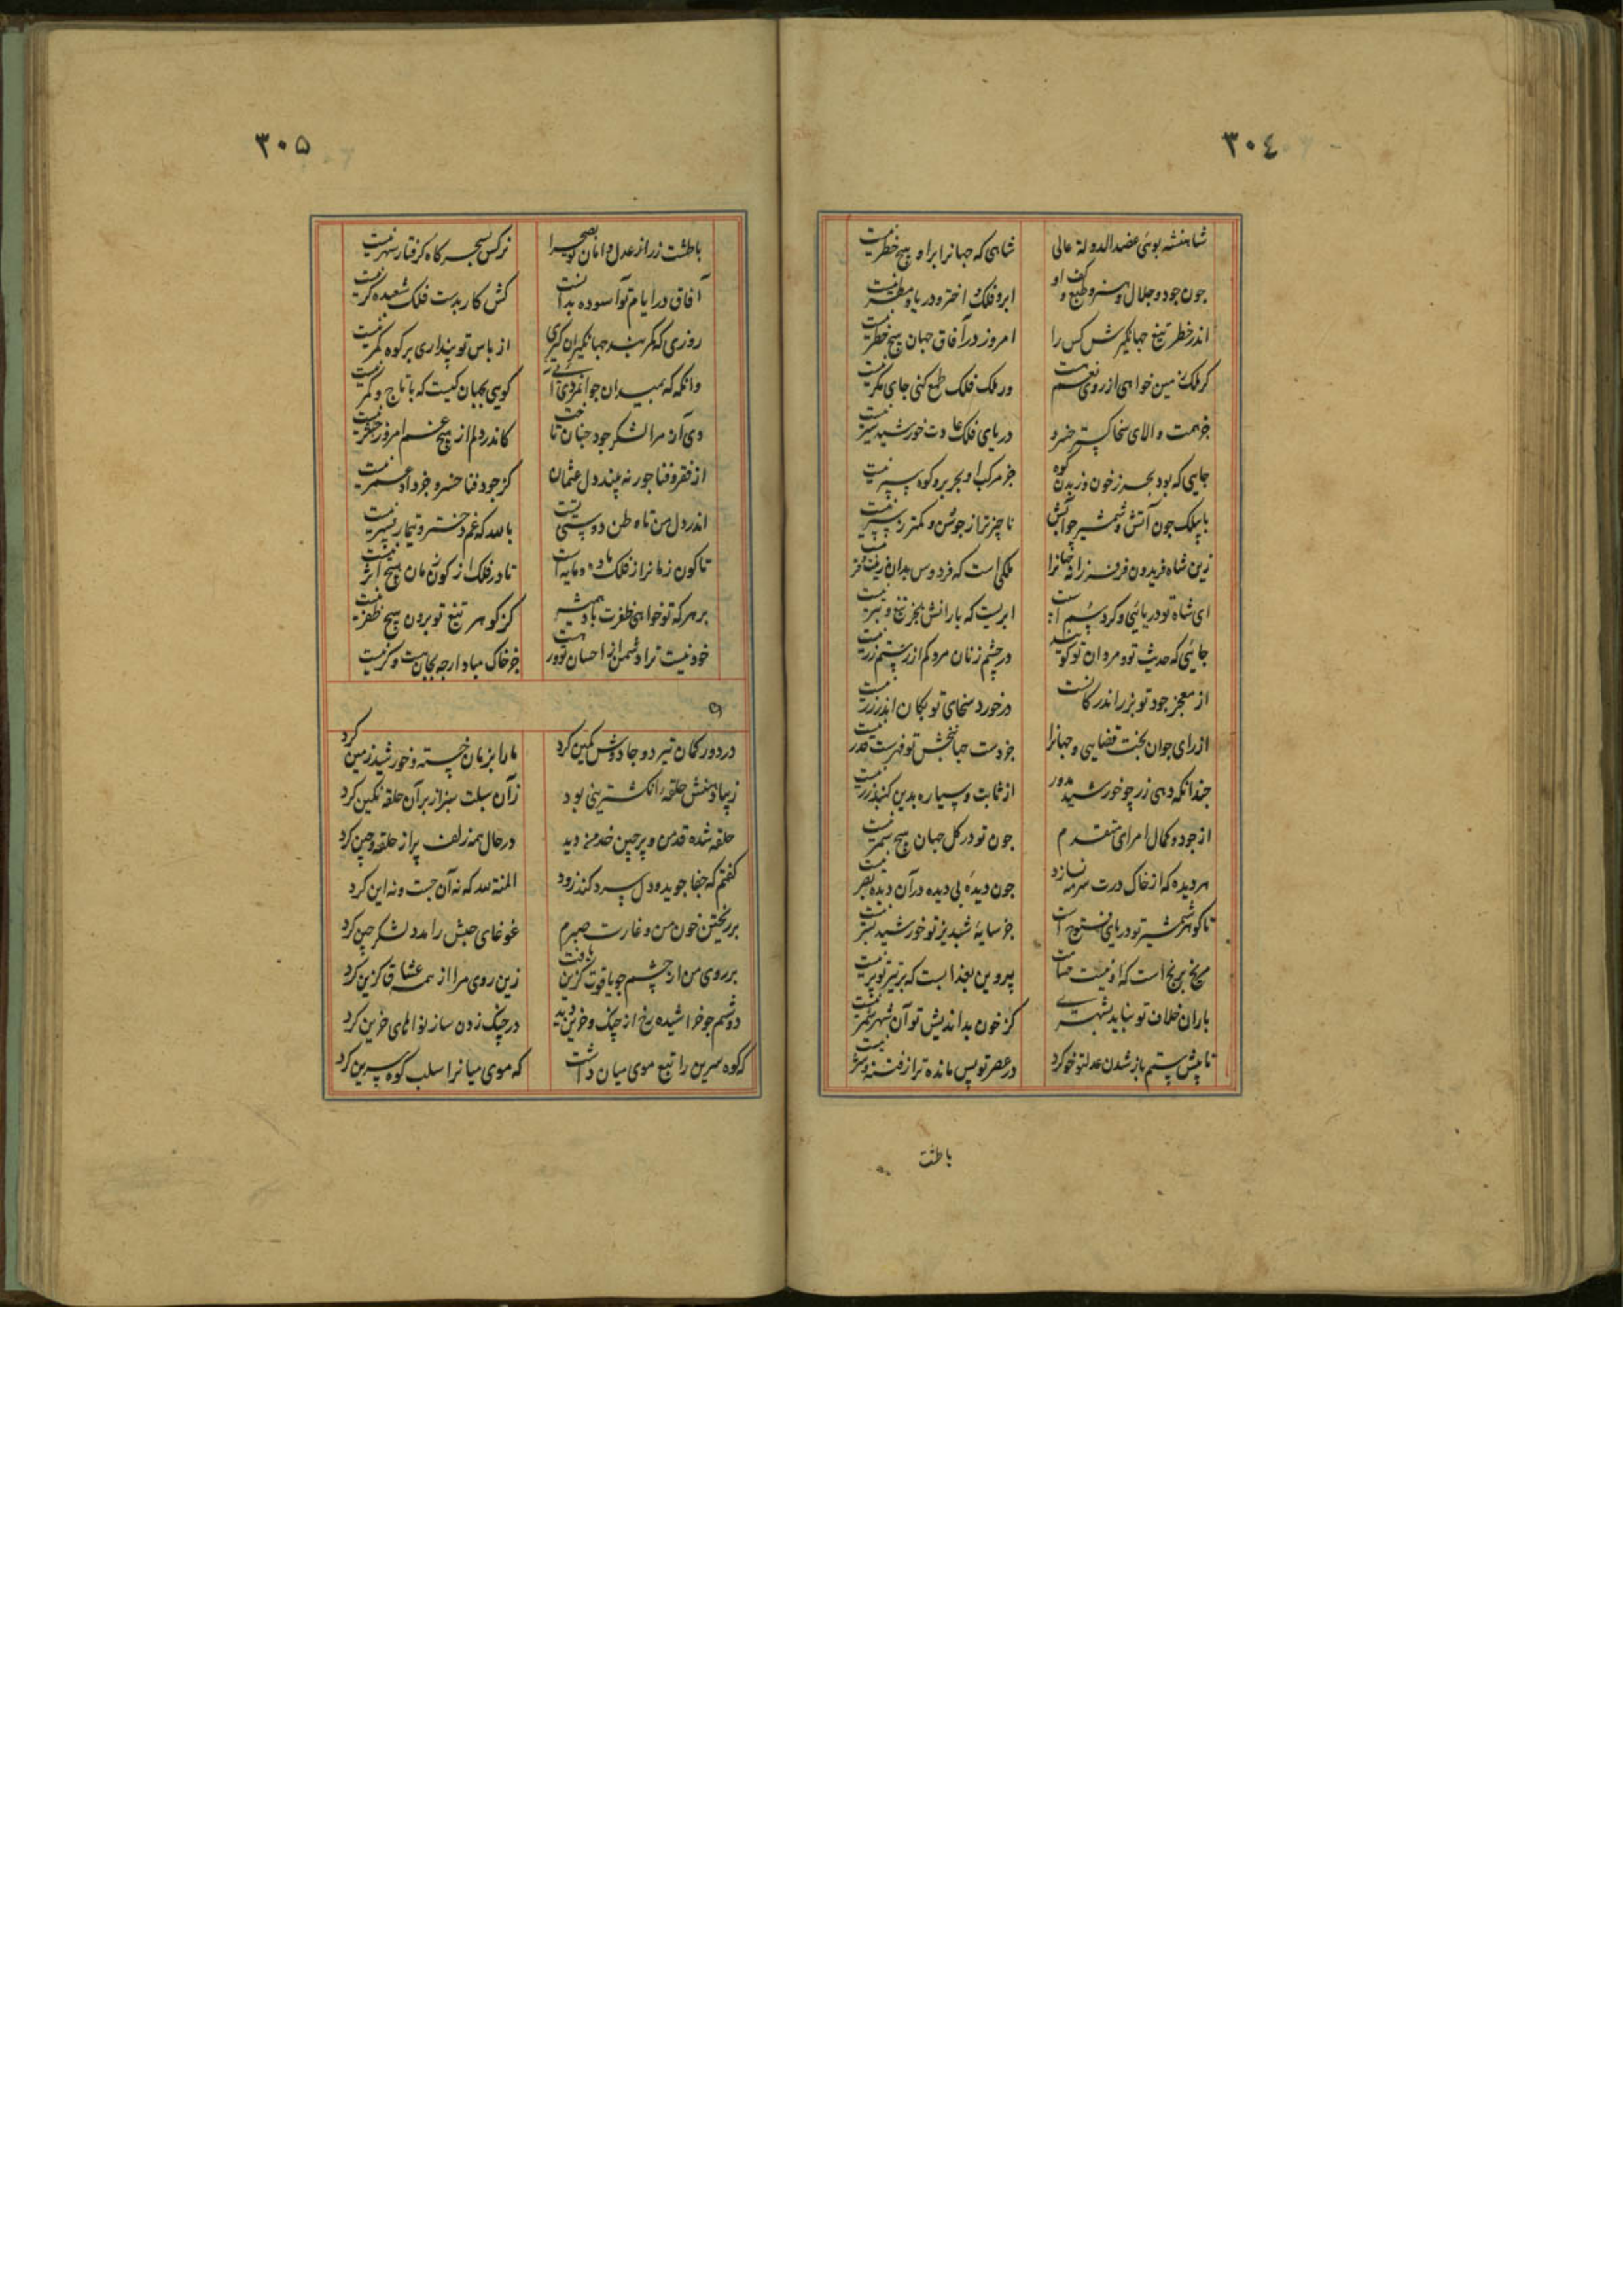 ٣٠٤
شاهنشه بوئی عضدالدوله عالی شاهی که جهانرا بر او هیچ خطر نیست
چون جود و جلال و هنر و طبع و کف او ابر و فلک و اختر و دریا و مطر نیست
اندر خطر تیغ جهانگیرش کس را امروز در آفاق جهان هیچ خطر نیست
گر ملک زمین خواهی از روی نعم هست ور ملک فلک طمع کنی جای مگر نیست
جز همت والای سخا گستر خسرو دریای فلک عادت خورشید سیر نیست
جایی که بود بحر ز خون وز بدن کوه جز مرکب او بحر بر و کوه سپر نیست
با بیلک چون آتش و شمشیر چو آتش ناچیزتر از جوشن و کمتر ز سپر نیست
زین شاه فریدون فر فرزانه جهانرا ملکی است که فردوس بدان زینت و فر نیست
ای شاه تو دریائی و کردسیم است ابریست که بارانش بجز تیغ و تبر نیست
جائی که حدیث تو و مردان تو گویند در چشم زنان مرد کم از رستم زر نیست
از معجز جود تو بزر اندر کانست در خورد سخای تو بکان اندر زر نیست
از رای جوان بخت قضایی و جهانرا جز دست جهانبخش تو فهرست قدر نیست
چندانکه دهی زر چو خورشید مدور از ثابت و سیاره بدین گنبد زر نیست
از جود و کمال امرای متقدم چون تو در کل جهان هیچ سمر نیست
هر دیده که از خاک درت سرمه نسازد چون دیده بی دیده در آن دیده بصر نیست
تا گوهر شمشیر تو دریای فتوح است جز سایه شبدیز تو خورشید بشر نیست
مریخ برنج است که او نیست پروین بعذابست که بر تیر تو پر نیست
باران خلاف تو نیاید شهری کز خون بداندیش تو آن شهر شمر نیست
تا پیش ستم باز شدن عدلتو خو کرد در عصر تو پس مانده تر از فتنه و شر نیست
باطشت
٣٠٥
باطشت زر از عدل و امان تو بصحرا نرگس بسحرگاه گرفتار سهر نیست
آفاق در ایام تو آسوده بدانست کش کار بدست فلک شعبده گر نیست
روزی که کمر بند جهانگیران گیری از باس تو پنداری بر کوه کمر نیست
وانگه که بمیدان جوانمردی آئی گویی بجهان کیست که با تاج و کمر نیست
دی آن مرا لشکر جود چنان تاخت کاندر دلم از هیچ غم امروز حشر نیست
از فقر و فنا جور نه بیند دل عثمان کز جود فنا خسرو جز داد عمر نیست
اندر دل من تا وطن دوستی تست بالله که غم دختر و تیمار پسر نیست
تا کون زمانرا ز فلک ماده و مایه است تا در فلک از کون زمان هیچ اثر نیست
بر هر که تو خواهی ظفرت باد همیشه کز گوهر تیغ تو برون هیچ ظفر نیست
خود نیست ترا دشمن از احسان تو ور هست جز خاک مباد ارچه بجان هست و گر نیست
در دور کمان تیر دو جادوش کمین کرد ما را بزمان خسته و خورشید زمین کرد
زیبا دهنش حلقه انگشترینی بود زان سبلت سبز از بر آن حلقه نگین کرد
حلقه شده قد من و پرچین خد من دید در حال همه زلف پر از حلقه و چین کرد
گفتم که جفا جوید و دل سرد کند زود المنة لله که نه آن جست و نه این کرد
بر ریختن خون من و غارت صبرم غوغای حبش را مدد لشکر چین کرد
بر روی من از چشم چو یاقوت گزین یافت زین روی مرا از همه عشاق گزین کرد
دوشم چو خراشیده رخ از چنگ و حزین دید در چنگ زدن ساز نواهای حزین کرد
که کوه سرین را تبع موی میان داشت که موی میانرا سلب کوه سرین کرد